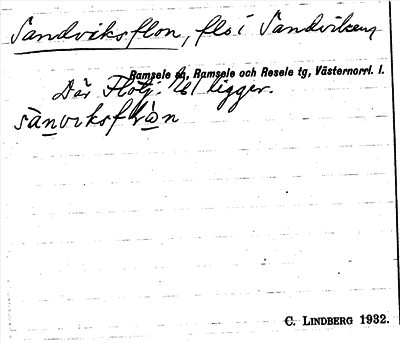 Sandviksflon, flo i Sandviken
Ramsele sn, Ramsele och Resele tg, Västernorrl. l.
Där Flötj. 161 ligger.
sànviksflòn
C. LINDBERG 1932.